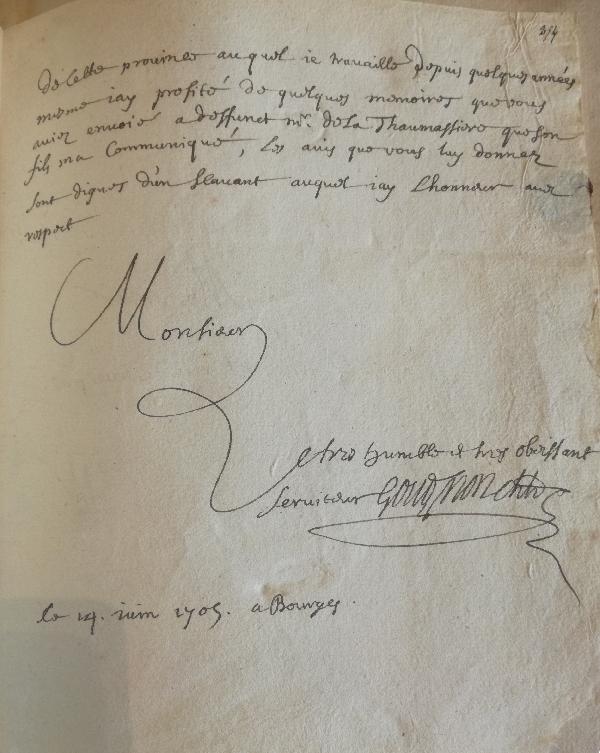 314
de Cette province auquel ie travaille Depuis quelques années
mesme iay profité de quelques memoires que vous
aviez envoié a deffunct mr. de la Thaumassiere que son
fils ma Communiqué, les avis que vous luy donnez
sont dignes d'un scavant auquel iay Lhonneur avec
respect
Monsieur
tres humble et tres obeissant
serviteur
le 14. iuin 1705. a Bourges.